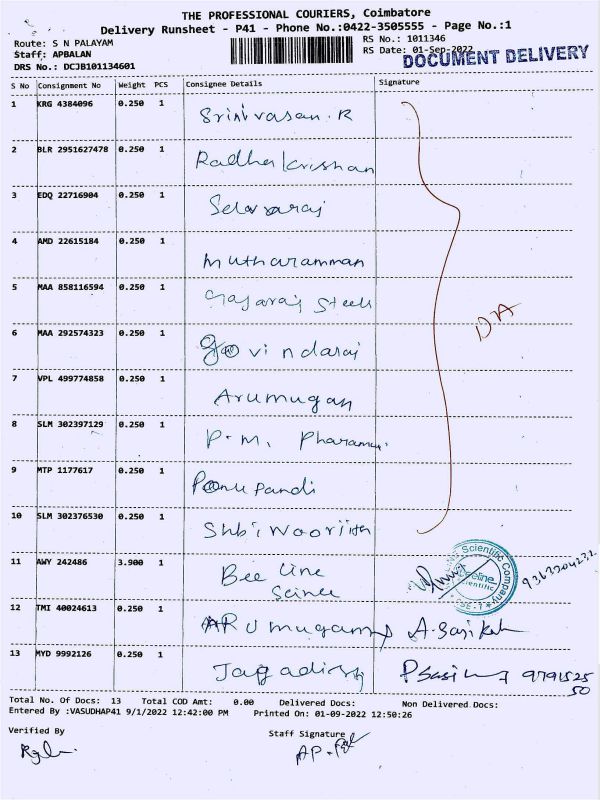 THE PROFESSIONAL COURIERS, Coimbatore
Delivery Runsheet - P41 - Phone No.:0422-3505555 - Page No.:1
Route: S N PALAYAM RS No.: 1011346
Staff: APBALAN RS Date: 01-Sep-2022
DRS No.: DCJB101134601 DOCUMENT DELIVERY
S No Consignment No Weight PCS Consignee Details Signature
1 KRG 4384096 0.250 1 Srinivasan. R
2 BLR 2951627478 0.250 1 Radha krishan
3 EDQ 22716904 0.250 1 Selvaraj
4 AMD 22615184 0.250 1 Mutharamman
5 MAA 858116594 0.250 1 Gajaraj Steels
6 MAA 292574323 0.250 1 Govindaraj
7 VPL 499774858 0.250 1 Arumugam
8 SLM 302397129 0.250 1 P.M.
9 MTP 1177617 0.250 1 Pandi
10 SLM 302376530 0.250 1
11 AWY 242486 3.900 1 Bee Line
Scientific Company
12 TMI 40024613 0.250 1 Arumugam
13 MYD 9992126 0.250 1 Jagadish 9791525
50
Total No. Of Docs: 13 Total COD Amt: 0.00 Delivered Docs: Non Delivered Docs:
Entered By :VASUDHAP41 9/1/2022 12:42:00 PM Printed On: 01-09-2022 12:50:26
Verified By Staff Signature